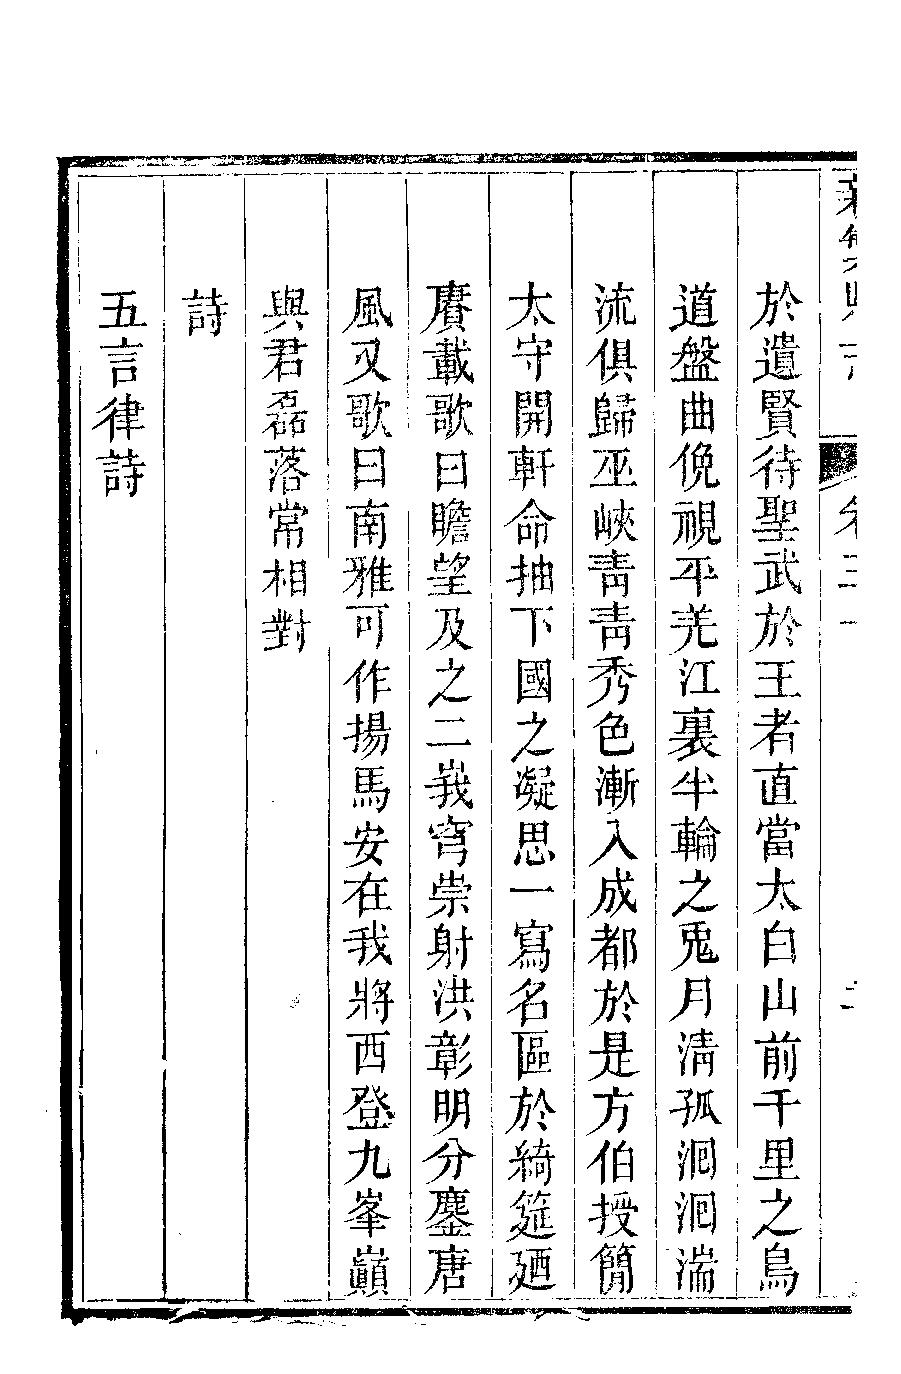 於遺賢待聖武於王者直當太白山前千里之鳥
道盤曲俛視平羌江裏半輪之兎月淸孤洄洄湍
流俱歸巫峽靑靑秀色漸入成都於是方伯授簡
太守開軒命抽下國之凝思一寫名區於綺筵廼
賡載歌曰瞻望及之二峩穹崇射洪彰明分鏖唐
風又歌曰南雅可作揚馬安在我將西登九峯巓
與君磊落常相對
詩
五言律詩